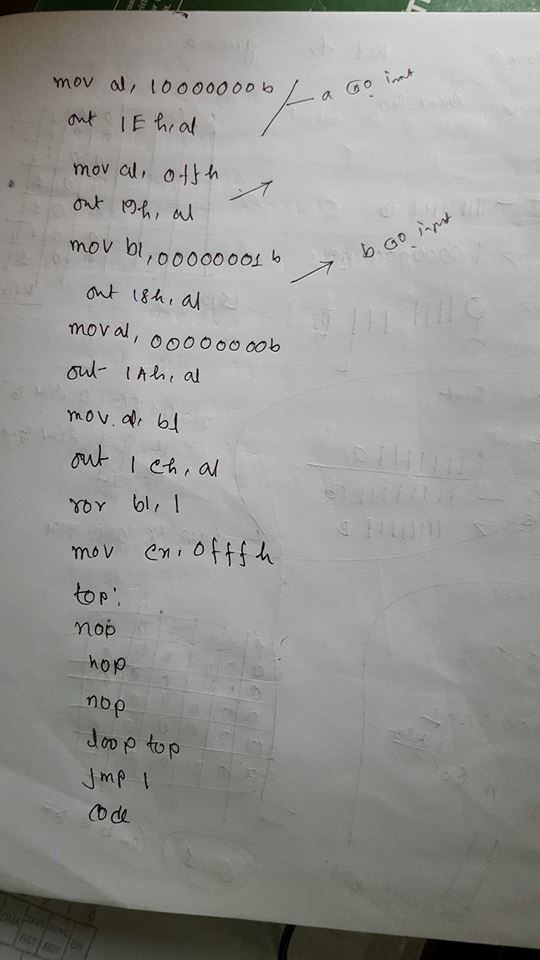 mov al, 10000000b
out 1Eh, al
mov al, 0ffh
out 19h, al
mov bl, 00000001b
out 18h, al
mov al, 00000000b
out 1Ah, al
mov al, bl
out 1Ch, al
ror bl, 1
mov cx, 0fffh
top:
nop
nop
nop
loop top
jmp 1
code
a
b
input